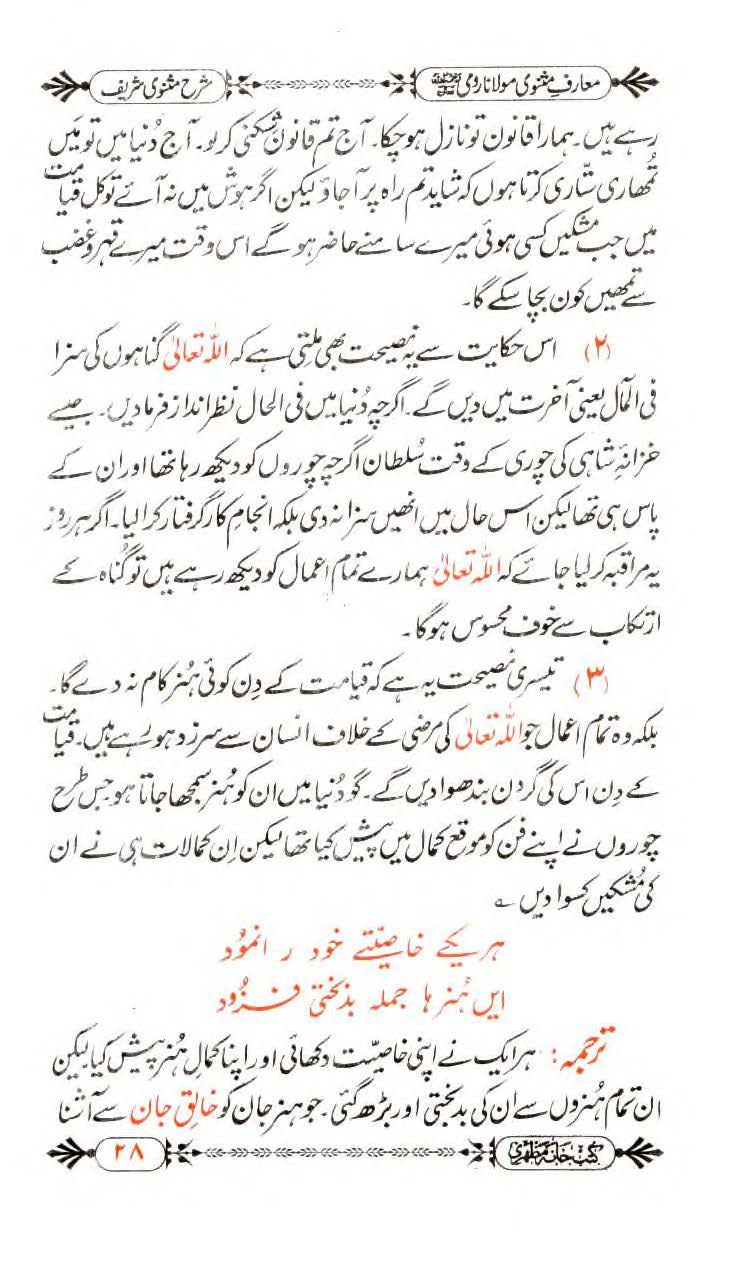 معارفِ مثنوی مولانا رومیؒ
شرح مثنوی شریف
رہے ہیں۔ ہمارا قانون تو نازل ہوچکا۔ آج تم قانون شکنی کرلو۔ آج دُنیا میں تو مَیں
تُمھاری ستّاری کرتا ہوں کہ شاید تم راہ پر آجاؤ لیکن اگر ہوش میں نہ آئے تو کل قیامت
میں جب مشکیں کسی ہوئی میرے سامنے حاضر ہوگے اس وقت میرے قہر و غضب
سے تمھیں کون بچا سکے گا۔
(۲) اس حکایت سے یہ نصیحت بھی ملتی ہے کہ اللہ تعالیٰ گناہوں کی سزا
فی المآل یعنی آخرت میں دیں گے۔ اگرچہ دُنیا میں فی الحال نظر انداز فرمادیں۔ جیسے
خزانۂ شاہی کی چوری کے وقت سُلطان اگرچہ چوروں کو دیکھ رہا تھا اور ان کے
پاس ہی تھا لیکن اس حال میں انھیں سزا نہ دی بلکہ انجامِ کار گرفتار کرالیا۔ اگر ہر روز
یہ مراقبہ کرلیا جائے کہ اللہ تعالیٰ ہمارے تمام اعمال کو دیکھ رہے ہیں تو گناہ کے
ارتکاب سے خوف محسوس ہوگا۔
(۳) تیسری نصیحت یہ ہے کہ قیامت کے دِن کوئی ہُنر کام نہ دے گا۔
بلکہ وہ تمام اعمال جو اللہ تعالیٰ کی مرضی کے خلاف انسان سے سرزد ہورہے ہیں۔ قیامت
کے دِن اس کی گردن بندھوادیں گے۔ گو دُنیا میں ان کو ہُنر سمجھا جاتا ہو جس طرح
چوروں نے اپنے فن کو موقع کمال میں پیش کیا تھا لیکن اِن کمالات ہی نے ان
کی مُشکیں کسوا دیں ؎
ہر یکے خاصیّتے خود ر انمُود
ایں ہُنر ہا جملہ بدبختی فزُود
ترجمہ: ہر ایک نے اپنی خاصیّت دکھائی اور اپنا کمالِ ہُنر پیش کیا لیکن
ان تمام ہُنروں سے ان کی بدبختی اور بڑھ گئی۔ جو ہنر جان کو خالقِ جان سے آشنا
کتب خانہ مظہری
۲۸